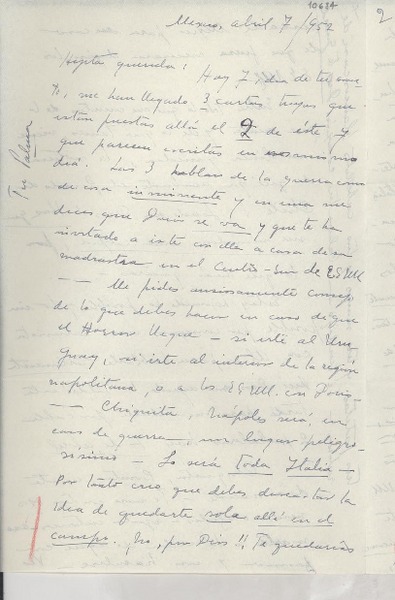 10624
2
Mexico, abril 7/952
Hijita querida: Hoy 7, día de tu san-
to, me han llegado 3 cartas tuyas que
están puestas allá el 2 de éste y
que parecen escritas en un mismo
día. Las 3 hablan de la guerra como
de cosa inminente y en una me
dices que Doris se va y que te ha
invitado a irte con ella a casa de su
madrastra en el Centro-Sur de ES.UU.
— Me pides ansiosamente consejo
de lo que debes hacer en caso de que
el Horror llegue — si irte al Uru-
guay, si irte al interior de la región
napolitana, o a los ES.UU. con Doris—
— Chiquita, Nápoles será, en
caso de guerra, un lugar peligro-
sísimo — Lo será toda Italia —
Por tanto creo que debes descartar la
idea de quedarte sola allá en el
campo. No, por Dios!! Te quedarías
Tu Palma